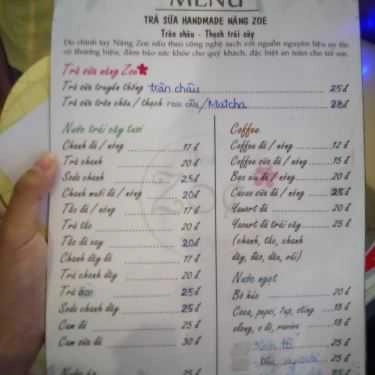 MENU
TRÀ SỮA HANDMADE NÀNG ZOE
Trân châu - Thạch trái cây
Do chính tay Nàng Zoe nấu theo công nghệ sạch với nguồn nguyên liệu uy tín
có thương hiệu, đảm bảo sức khỏe cho quý khách, đặc biệt an toàn cho trẻ em.
Trà sữa nàng Zoe
Trà sữa truyền thống trân châu 25đ
Trà sữa trân châu / thạch rau câu/Matcha 28đ
Nước trái cây tươi
Chanh đá / nóng 17đ
Trà chanh 20đ
Soda chanh 25đ
Chanh muối đá / nóng 20đ
Tắc đá / nóng 17đ
Trà tắc 20đ
Tắc đá xay 20đ
Chanh dây đá 17đ
Trà chanh dây 20đ
Trà 25đ
Soda chanh dây 25đ
Cam đá 25đ
Cam sữa đá 30đ
Coffee
Coffee đá / nóng 12đ
Coffee sữa đá / nóng 15đ
Bạc xỉu đá / nóng 20đ
Cacao sữa đá / nóng 25đ
Yaourt đá 20đ
Yaourt đá trái cây 25đ
(chanh, tắc, chanh
dây, dâu, dứa, ổi)
Nước ngọt
Bò húc 20đ
Coca, pepsi, 7up, sting 15đ
olong, c đỏ, revive 15đ
25đ